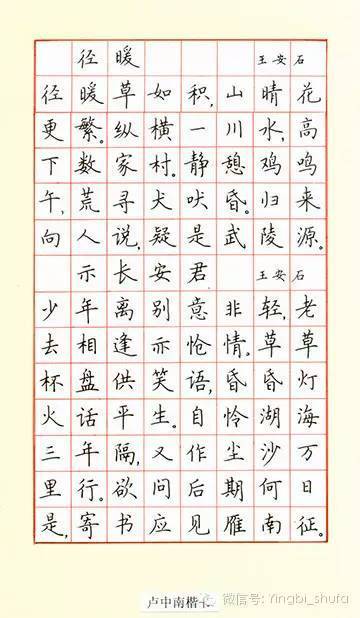 径暖 王安石
径暖草如积，山晴花
更繁。纵横一川水，高
下数家村。静憩鸡鸣
午，荒寻犬吠昏。归来
向人说，疑是武陵源。
示长安君 王安石
少年离别意非轻，老
去相逢亦怆情。草草
杯盘供笑语，昏昏灯
火话平生。自怜湖海
三年隔，又作尘沙万
里行。欲问后期何日
是，寄书应见雁南征。
卢中南楷书
微信号: Yingbi_shufa